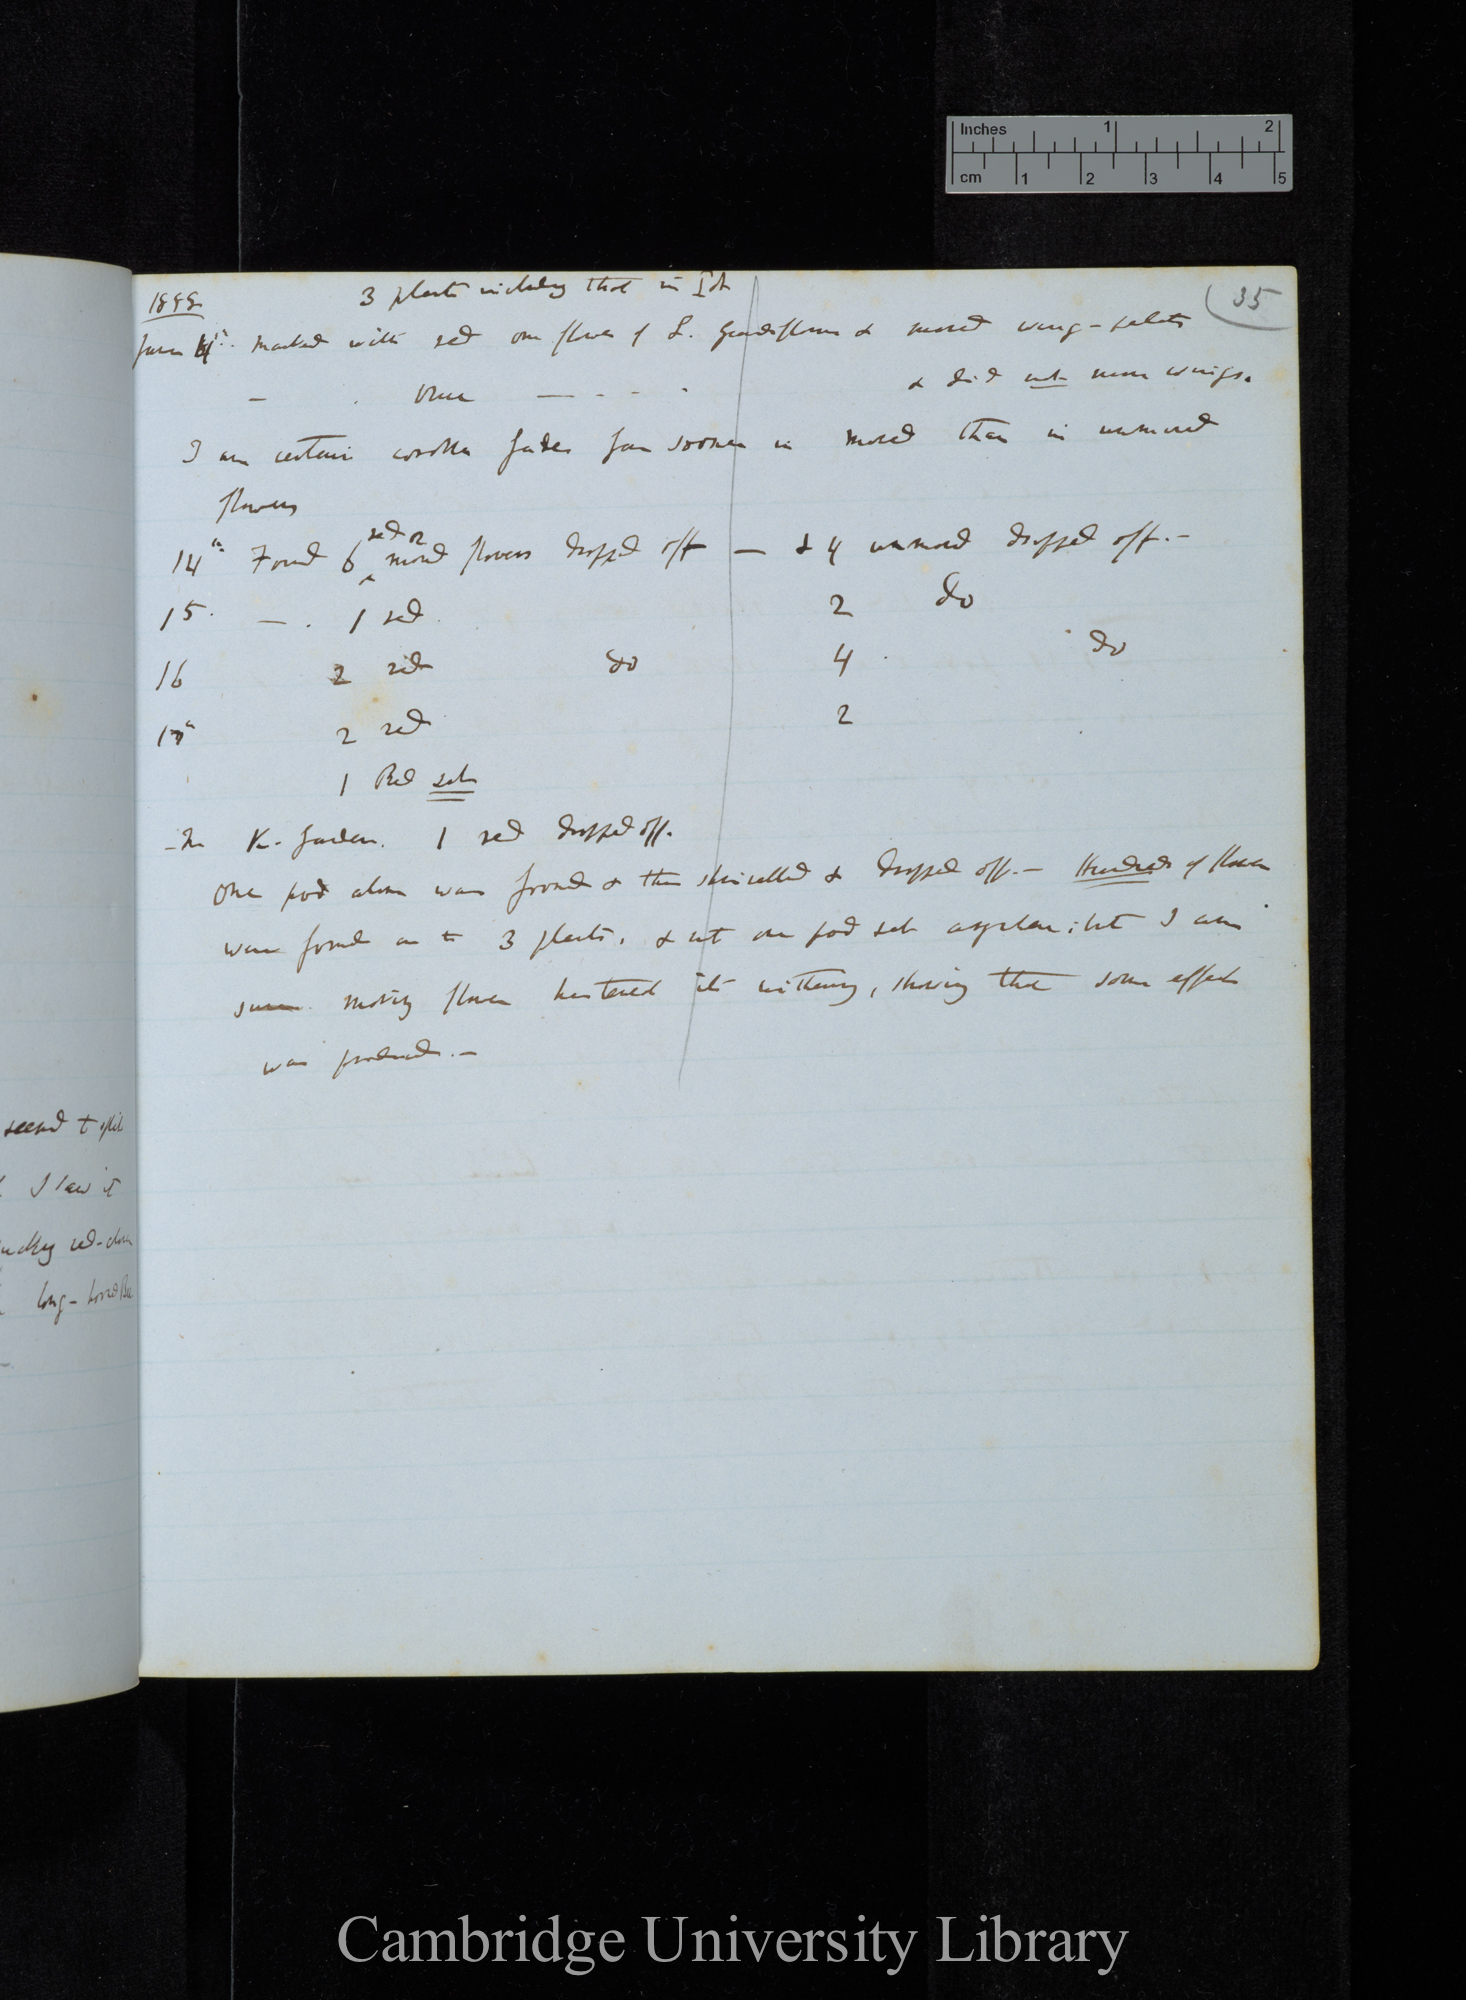 Inches 1 2
cm 1 2 3 4 5
35
3 plants including that in Pot
June 4th. marked with red one flower of L. Grandiflorus & moved wing-petals
— . one — - - - & did not move wings.
I am certain corolla fades far sooner in moved than in unmoved
flowers
14th Found 6 red or moved flowers dropped off — & 4 unmoved dropped off.—
15. —. 1 red. 2 do
16 2 red do 4 . do
17th 2 red 2
1 Red set
—In K. Garden. 1 red dropped off.
One pod alone was formed & then shrivelled & dropped off.— Hundreds of flowers
were formed on the 3 plants, & not one pod set anywhere; but I am
sure moving flower hastened its withering, showing that some effect
was produced.—
seemed to split
I saw it
sucking red-clover
long-horned Bee
Cambridge University Library